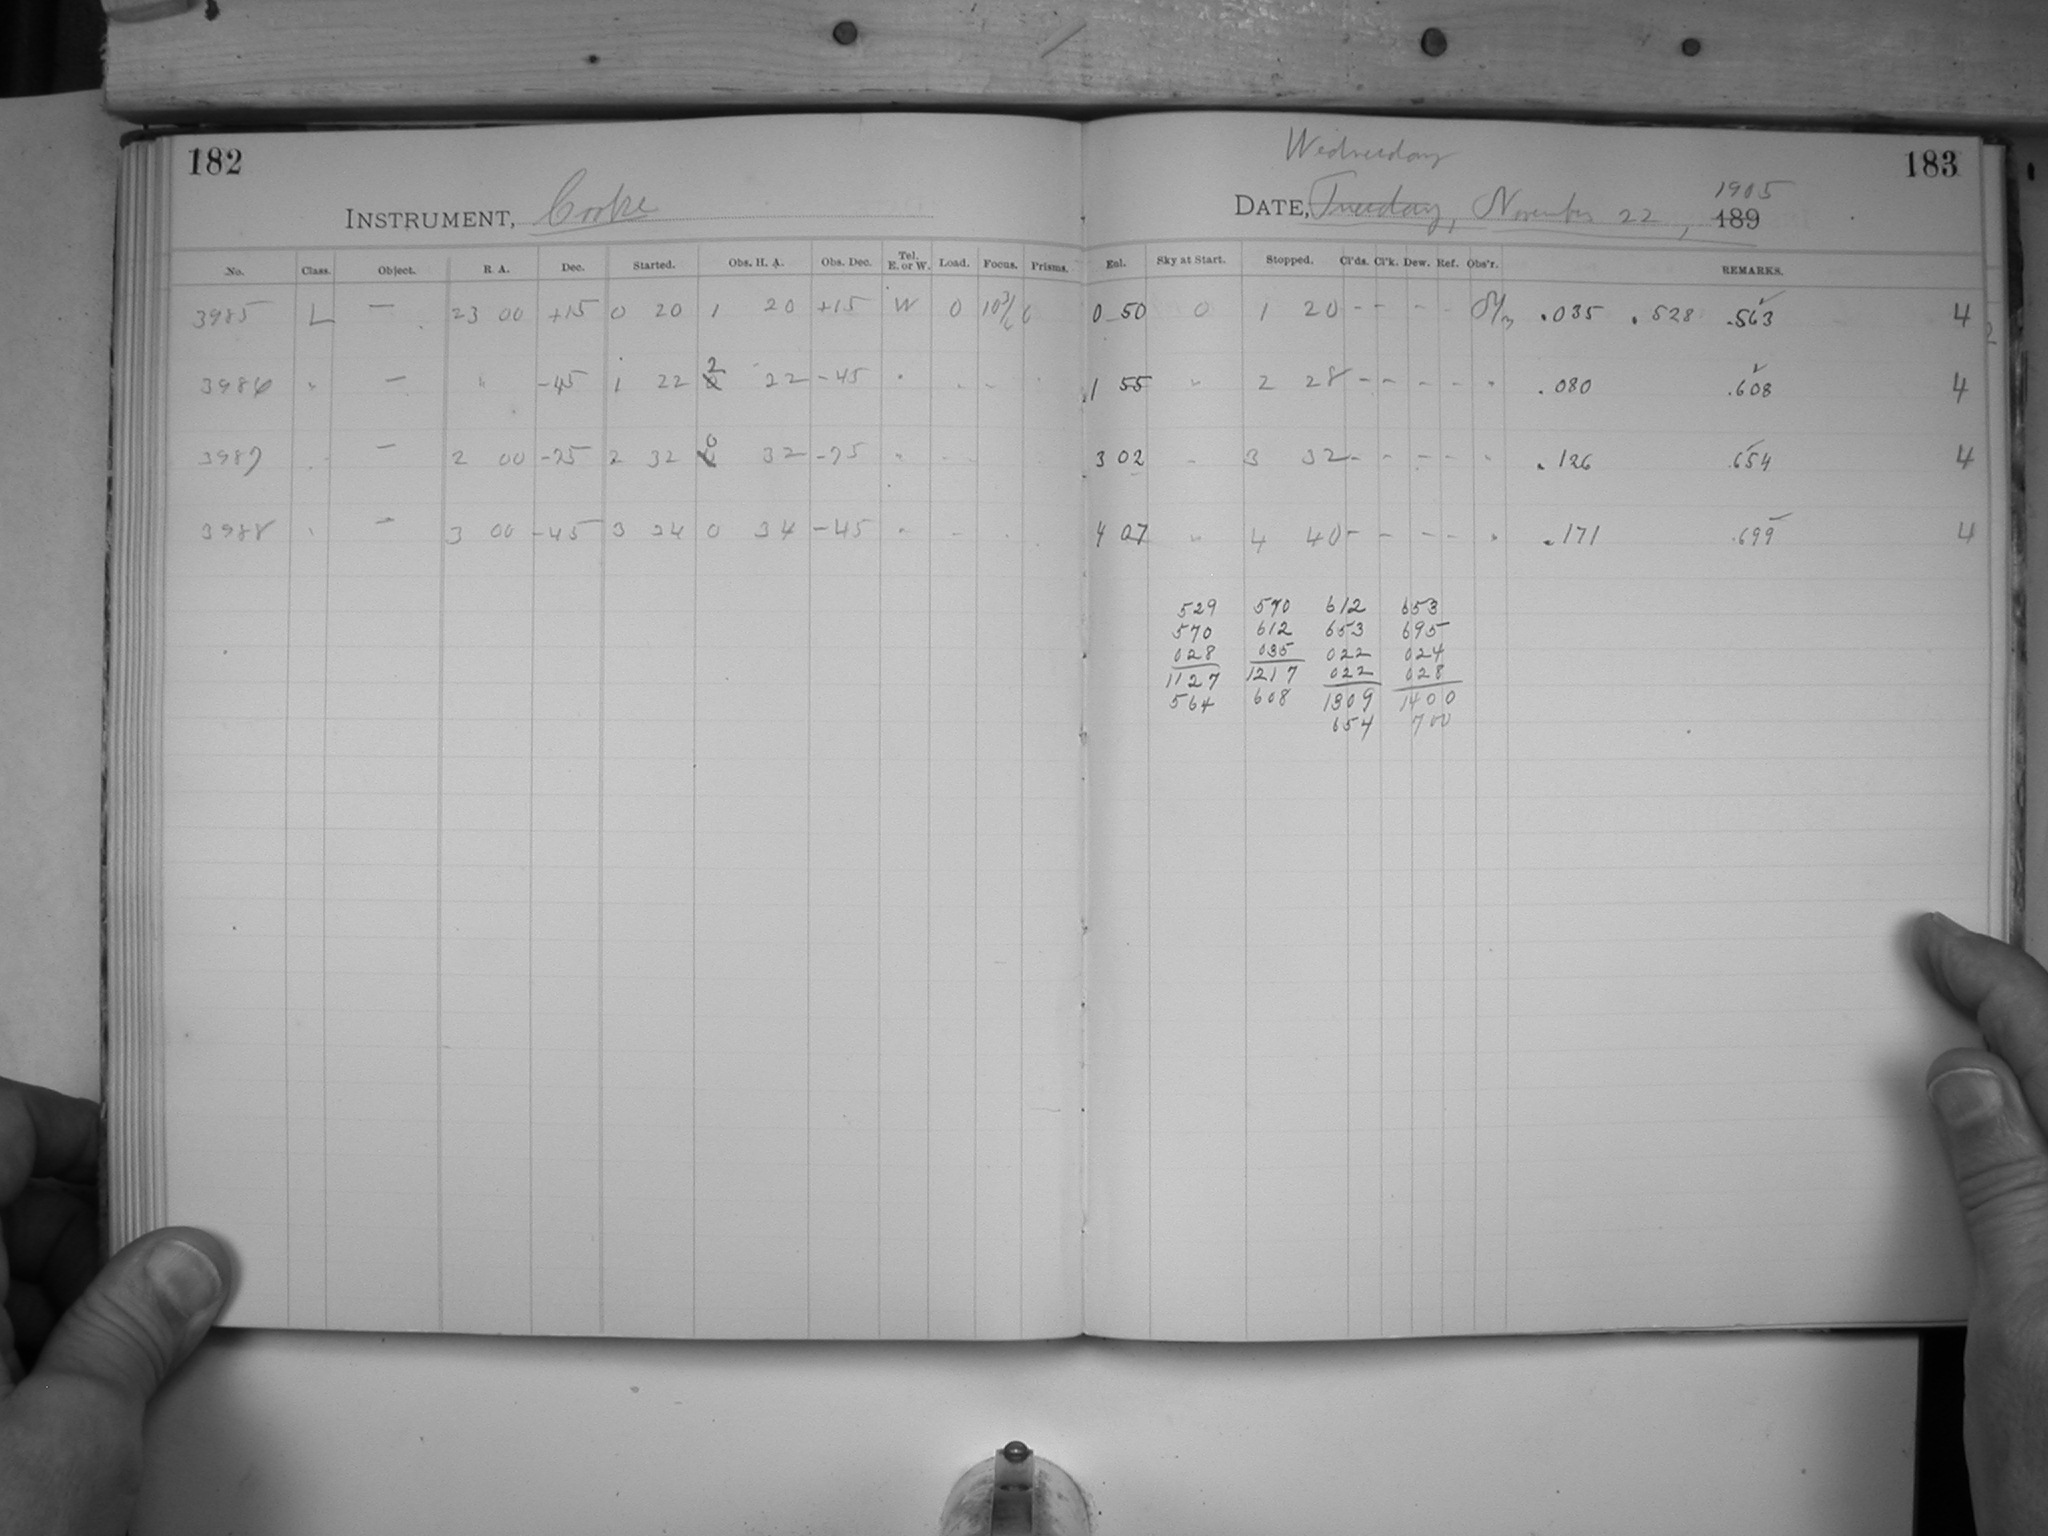 182
INSTRUMENT, Cooke
No. Class. Object. R. A. Dec. Started. Obs. H. A. Obs. Dec. Tel. E. or W. Load. Focus. Prisms.
3985 L — 23 00 +15 0 20 1 20 +15 W 0 10 3/6 0
3986 " — " -45 1 22 2 22 -45 "
3987 " — 2 00 -75 2 32 0 32 -75 "
3988 " — 3 00 -45 3 34 0 34 -45 "
Wednesday
183
DATE, Tuesday, November 22, 1905
189
Enl. Sky at Start. Stopped. Cl'ds. Cl'k. Dew. Ref. Obs'r. REMARKS.
0 50 0 1 20 - - - - .035 .528 .563 4
1 55 " 2 28 - - - - " .080 .608 4
3 02 " 3 32 - - - - " .126 .654 4
4 07 " 4 40 - - - - " .171 .699 4
529 570 612 653
570 612 653 695
028 035 022 024
1127 1217 022 028
564 608 1309 1400
654 700